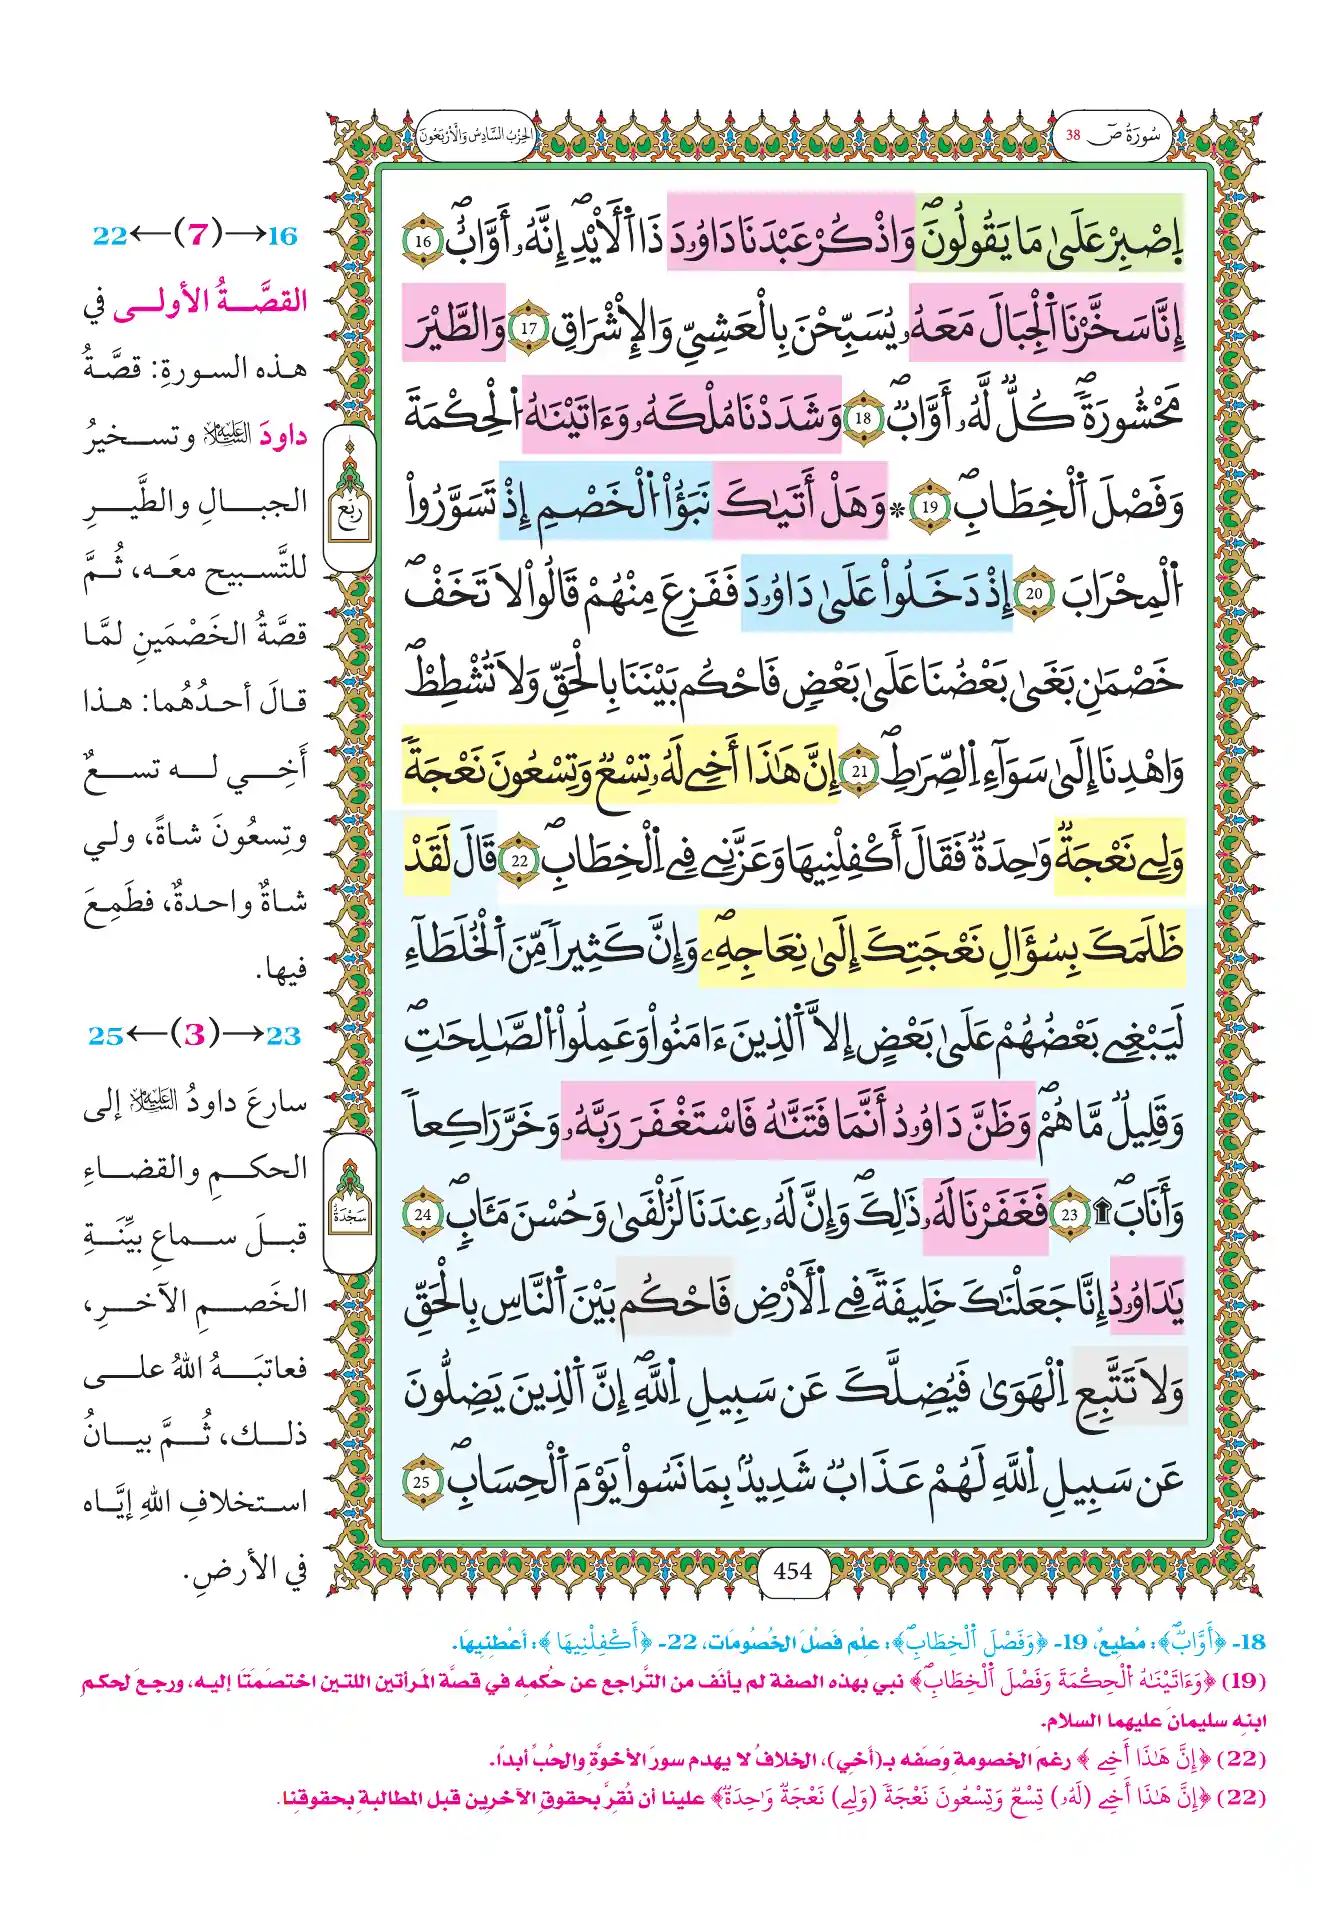 سُورَةُ صٓ 38
الحِزْبُ السَّادِسُ وَالْأَرْبَعُونَ
اِصْبِرْ عَلَىٰ مَا يَقُولُونَۖ وَاذْكُرْ عَبْدَنَا دَاوُۥدَ ذَا اَ۬لَايْدِۖ إِنَّهُۥٓ أَوَّابٌۖ 16
إِنَّا سَخَّرْنَا اَ۬لْجِبَالَ مَعَهُۥ يُسَبِّحْنَ بِالْعَشِيِّ وَالِاشْرَاقِ 17 وَالطَّيْرَ
مَحْشُورَةٗۖ كُلّٞ لَّهُۥٓ أَوَّابٞۖ 18 وَشَدَدْنَا مُلْكَهُۥ وَءَاتَيْنَٰهُ اُ۬لْحِكْمَةَ
وَفَصْلَ اَ۬لْخِطَابِۖ 19 * وَهَلْ أَتَيٰكَ نَبَؤُاْ اُ۬لْخَصْمِ إِذْ تَسَوَّرُواْ
اُ۬لْمِحْرَابَ 20 إِذْ دَخَلُواْ عَلَىٰ دَاوُۥدَ فَفَزِعَ مِنْهُمْ قَالُواْ لَا تَخَفْۖ
خَصْمَٰنِ بَغَىٰ بَعْضُنَا عَلَىٰ بَعْضٖ فَاحْكُم بَيْنَنَا بِالْحَقِّ وَلَا تُشْطِطْۖ
وَاهْدِنَا إِلَىٰ سَوَآءِ اِ۬لصِّرَٰطِۖ 21 إِنَّ هَٰذَا أَخِے لَهُۥ تِسْعٞ وَتِسْعُونَ نَعْجَةٗ
وَلِے نَعْجَةٞ وَٰحِدَةٞ فَقَالَ أَكْفِلْنِيهَا وَعَزَّنِے فِے اِ۬لْخِطَابِۖ 22 قَالَ لَقَدْ
ظَلَمَكَ بِسُؤَالِ نَعْجَتِكَ إِلَىٰ نِعَاجِهِۦۖ وَإِنَّ كَثِيراٗ مِّنَ اَ۬لْخُلَطَآءِ
لَيَبْغِے بَعْضُهُمْ عَلَىٰ بَعْضٍ اِلَّا اَ۬لذِينَ ءَامَنُواْ وَعَمِلُواْ اُ۬لصَّٰلِحَٰتِۖ
وَقَلِيلٞ مَّا هُمْۖ وَظَنَّ دَاوُۥدُ أَنَّمَا فَتَنَّٰهُ فَاسْتَغْفَرَ رَبَّهُۥ وَخَرَّ رَاكِعاٗ
وَأَنَابَۖ ۩ 23 فَغَفَرْنَا لَهُۥ ذَٰلِكَۖ وَإِنَّ لَهُۥ عِندَنَا لَزُلْفَىٰ وَحُسْنَ مَـَٔابٖۖ 24
يَٰدَاوُۥدُ إِنَّا جَعَلْنَٰكَ خَلِيفَةٗ فِے اِ۬لَارْضِ فَاحْكُم بَيْنَ اَ۬لنَّاسِ بِالْحَقِّ
وَلَا تَتَّبِعِ اِ۬لْهَوَىٰ فَيُضِلَّكَ عَن سَبِيلِ اِ۬للَّهِۖ إِنَّ اَ۬لذِينَ يَضِلُّونَ
عَن سَبِيلِ اِ۬للَّهِ لَهُمْ عَذَابٞ شَدِيدُۢ بِمَا نَسُواْ يَوْمَ اَ۬لْحِسَابِۖ 25
رُبُع
سَجْدَة
454
16→(7)←22
القصَّةُ الأولى في
هذه السورةِ: قصَّةُ
داودَ عليه السلام وتسخيرُ
الجبالِ والطَّيرِ
للتَّسبيح معَه، ثُمَّ
قصَّةُ الخَصْمَينِ لمَّا
قالَ أحدُهُما: هذا
أَخِي له تسعٌ
وتِسعُونَ شاةً، ولي
شاةٌ واحدةٌ، فطَمِعَ
فيها.
23→(3)←25
سارعَ داودُ عليه السلام إلى
الحكمِ والقضاءِ
قبلَ سماعِ بيِّنَةِ
الخَصمِ الآخرِ،
فعاتبَهُ اللهُ على
ذلك، ثُمَّ بيانُ
استخلافِ اللهِ إيَّاه
في الأرضِ.
18- ﴿أَوَّابٌۖ﴾: مُطِيعٌ، 19- ﴿وَفَصْلَ اَ۬لْخِطَابِۖ﴾: عِلْم فَصْلَ الخُصُومَات، 22- ﴿أَكْفِلْنِيهَا﴾: أَعْطِنِيهَا.
(19) ﴿وَءَاتَيْنَٰهُ اُ۬لْحِكْمَةَ وَفَصْلَ اَ۬لْخِطَابِۖ﴾ نبي بهذه الصفة لم يأنَف من التَّراجع عن حُكمِه في قصَّة المرأتين اللتين اختصَمَتَا إليه، ورجعَ لحكمِ
ابنِه سليمانَ عليهما السلام.
(22) ﴿إِنَّ هَٰذَا أَخِے﴾ رغمَ الخصومةِ وَصَفه بـ(أَخِي)، الخلافُ لا يهدم سورَ الأخوَّةِ والحُبِّ أبدًا.
(22) ﴿إِنَّ هَٰذَا أَخِے (لَهُۥ) تِسْعٞ وَتِسْعُونَ نَعْجَةٗ (وَلِے) نَعْجَةٞ وَٰحِدَةٞ﴾ علينا أن نُقِرَّ بحقوقِ الآخرين قبل المطالبةِ بحقوقِنا.